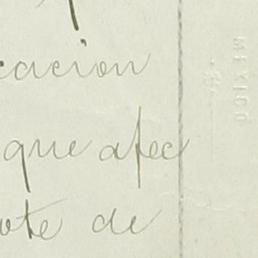 cacion
que afec
ote de
MEXICO